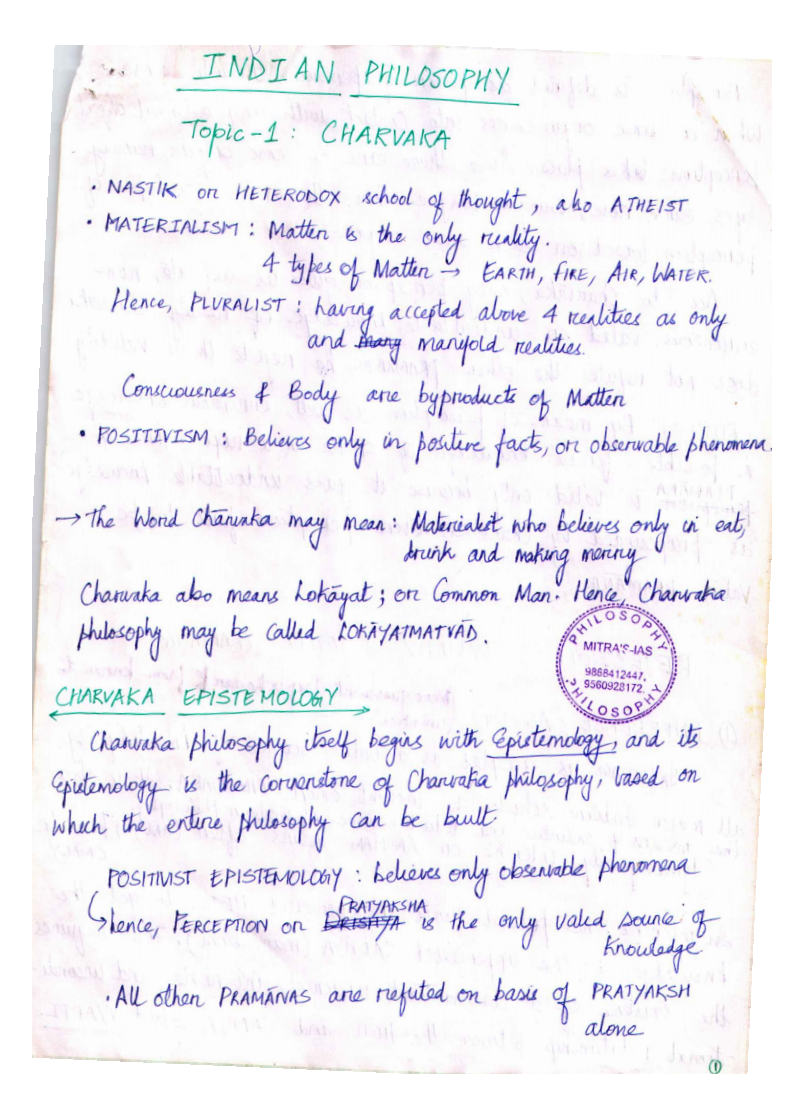 INDIAN PHILOSOPHY
Topic-1 : CHARVAKA
• NASTIK or HETERODOX school of thought, also ATHEIST
• MATERIALISM : Matter is the only reality.
4 types of Matter → EARTH, FIRE, AIR, WATER.
Hence, PLURALIST : having accepted above 4 realities as only
and many manifold realities.
Consciousness & Body are byproducts of Matter
• POSITIVISM : Believes only in positive facts, or observable phenomena.
→ The Word Chārvaka may mean : Materialist who believes only in eat,
drink and making merry
Charvaka also means Lokāyat ; or Common Man. Hence, Charvaka
philosophy may be called LOKĀYATMATVĀD.
PHILOSOPHY
MITRA'S-IAS
9868412447,
9560928172.
PHILOSOPHY
CHARVAKA EPISTEMOLOGY
Charvaka philosophy itself begins with Epistemology, and its
Epistemology is the cornerstone of Charvaka philosophy, based on
which the entire philosophy can be built
POSITIVIST EPISTEMOLOGY : believes only observable phenomena
PRATYAKSHA
hence, PERCEPTION or DRISHYA is the only valid source of
Knowledge
• All other PRAMĀNAS are refuted on basis of PRATYAKSH
alone
1